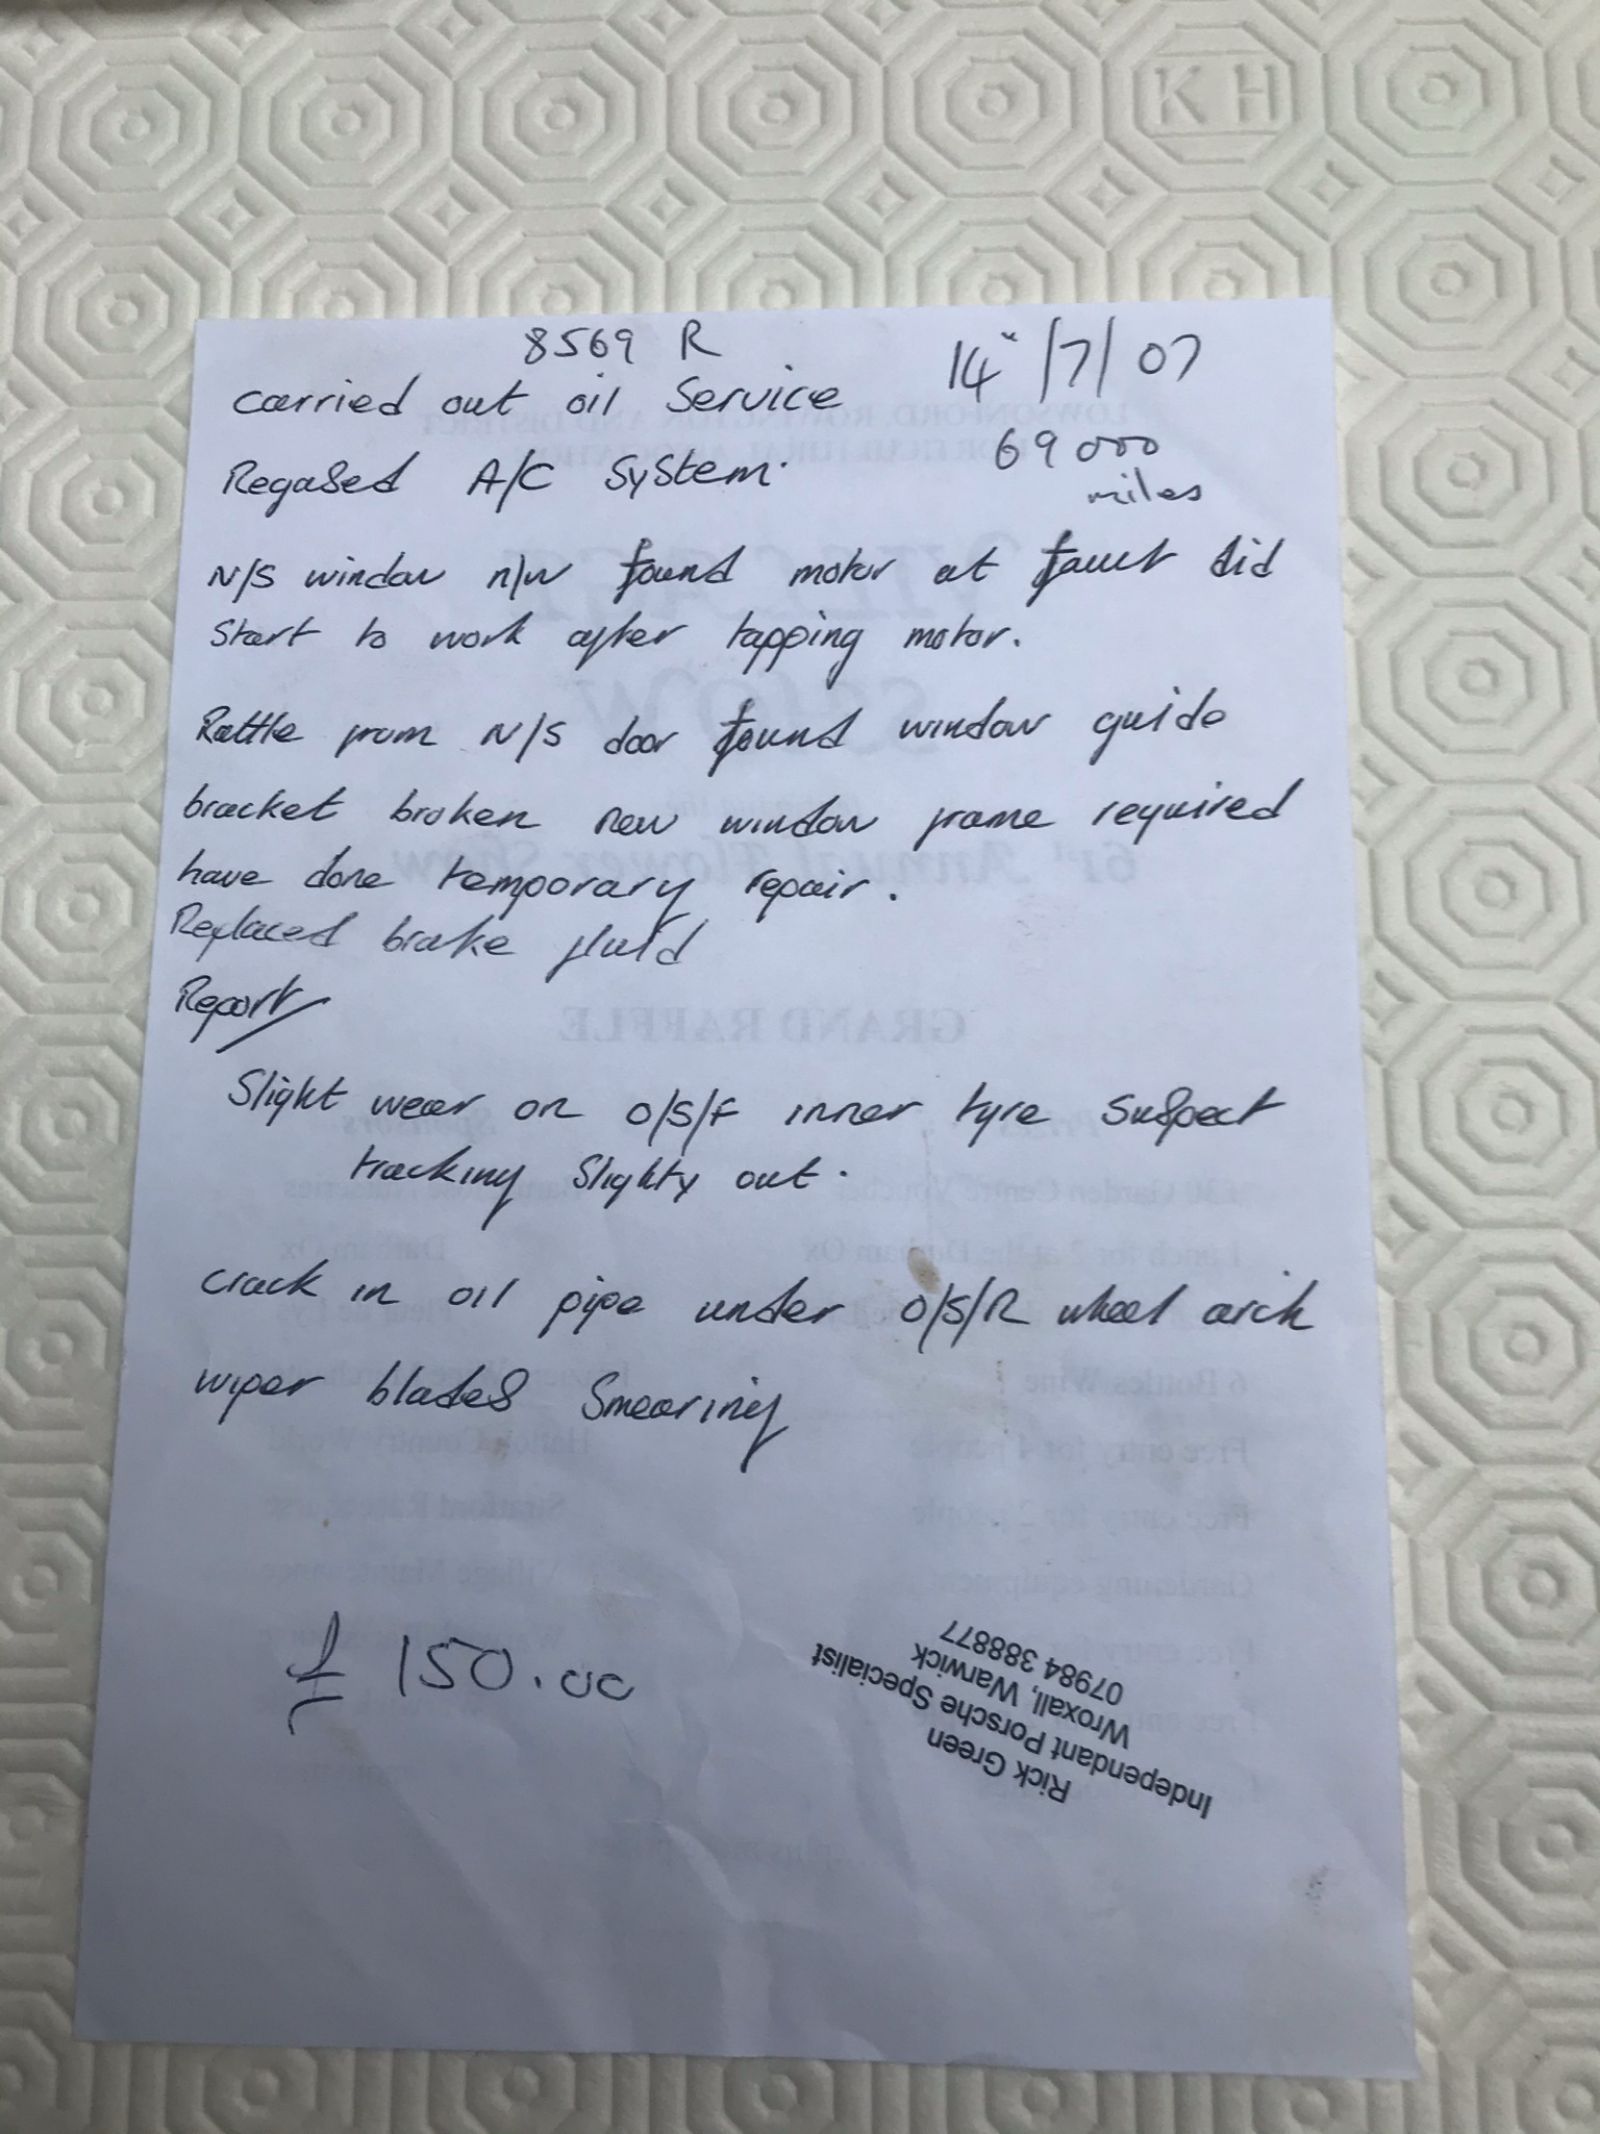 KH
8569 R
14"/7/07
carried out oil Service
69000
miles
RegaSed A/C System.
N/S window n/w found motor at fault did
start to work after tapping motor.
Rattle from N/S door found window guide
bracket broken new window frame required
have done temporary repair.
Replaced brake fluid
Report
Slight wear on O/S/F inner tyre suspect
tracking Slighty out.
crack in oil pipe under O/S/R wheel arch
wiper blades Smearing
£150.00
Rick Green
Independant Porsche Specialist
Wroxall, Warwick
07984 388877
LOWSONFORD, ROWINGTON AND DISTRICT
VILLAGE
SHOW
61st Annual Flower Show
GRAND RAFFLE
Sponsors
6 Bottles Wine